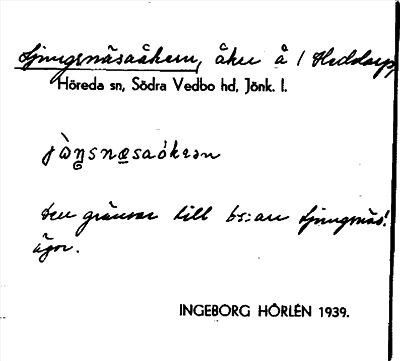 Ljungsnäsaåkern, åker å 1 Heddarp,
Höreda sn, Södra Vedbo hd, Jönk. l.
jὼŋsnæsaókɘrn
Den gränsar till bs:an Ljungsnäs!
ägor.
INGEBORG HÖRLÉN 1939.